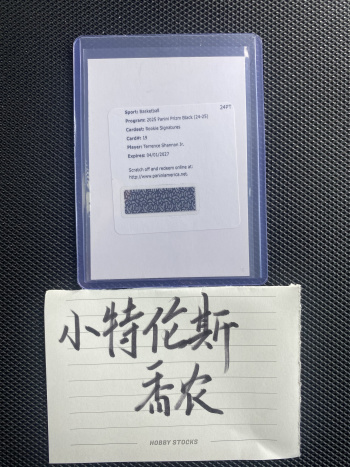 Sport: Basketball
24PT
Program: 2025 Panini Prizm Black (24-25)
Cardset: Rookie Signatures
Card#: 18
Player: Terrence Shannon Jr.
Expires: 04/01/2027
Scratch off and redeem online at:
http://www.paniniamerica.net.
小特伦斯
香农
HOBBY STOCKS